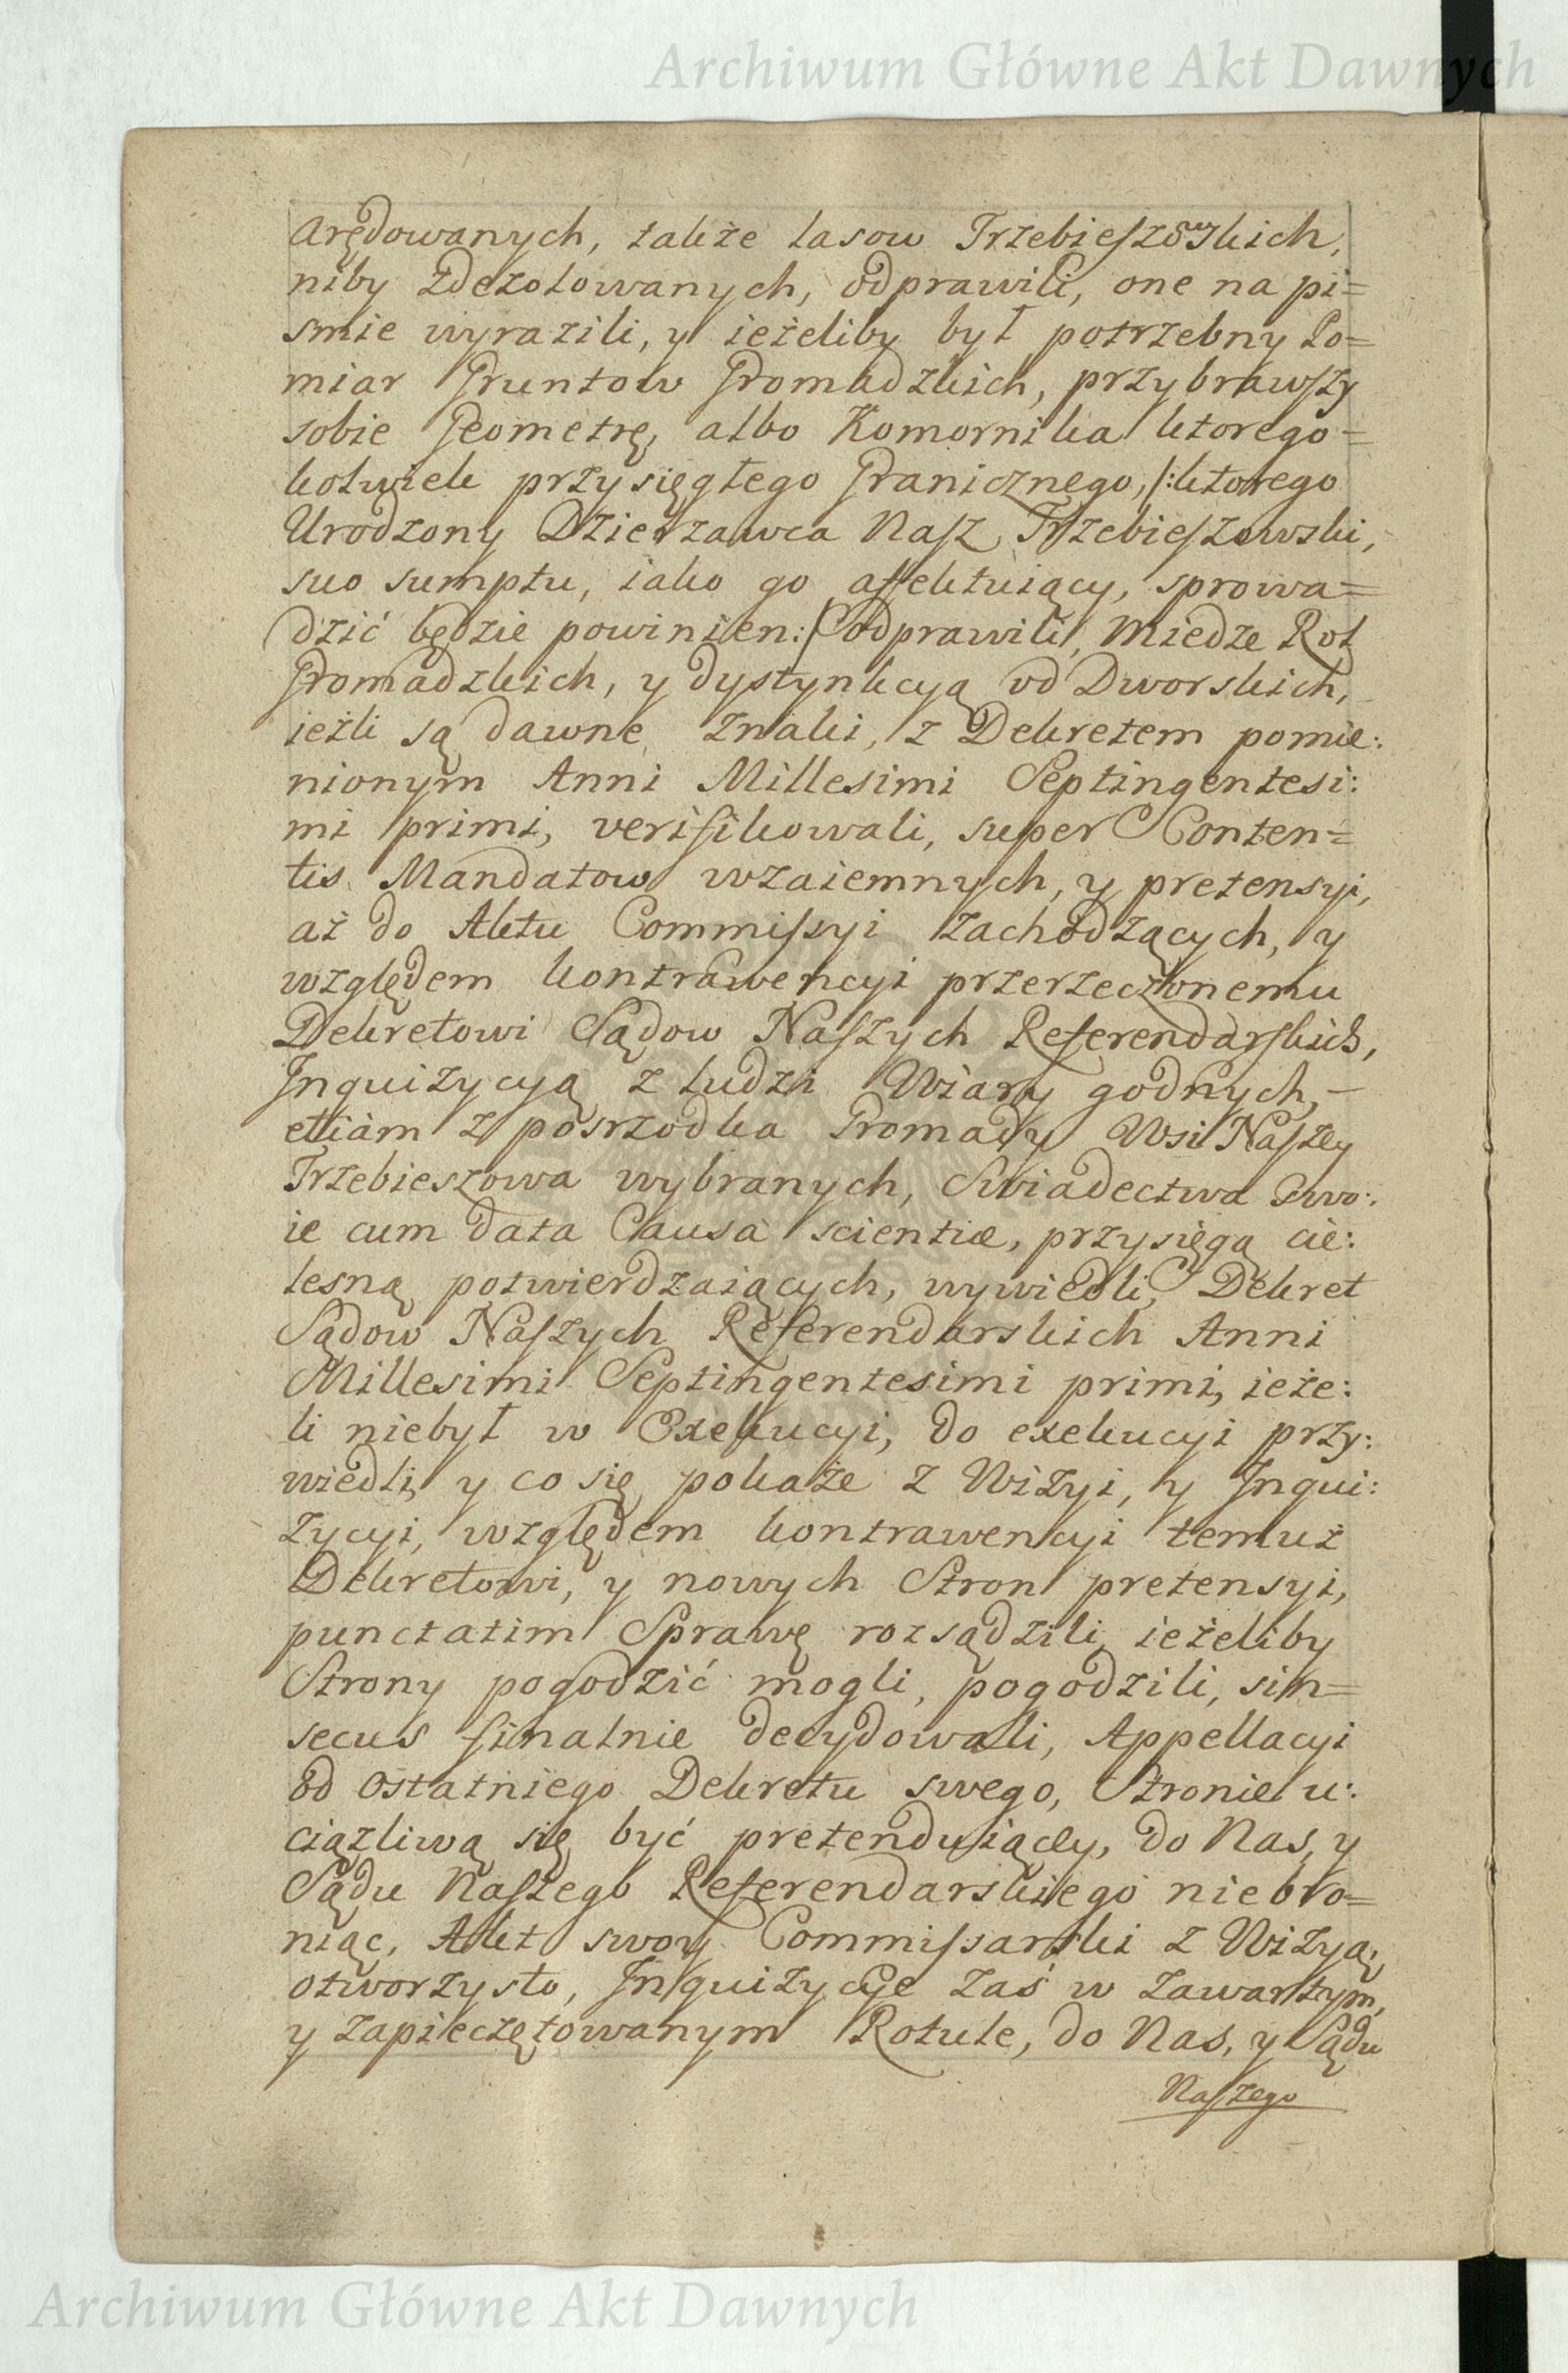 Archiwum Główne Akt Dawnych
Arędowanych, także lasow Trzebieszowskich,
niby zdezolowanych, odprawili, one na pi=
smie wyrazili, y ieżeliby był potrzebny Po=
miar Gruntow Gromadzkich, przybrawszy
sobie Geometrę, albo Komornika ktorego=
kolwiek przysięgłego Granicznego, /:ktorego
Urodzony Dzierzawca Nasz Trzebieszowski,
suo sumptu, iako go affektuiący, sprowa=
dzić będzie powinien:/ odprawili, Miedze Rol
Gromadzkich, y dystynkcyą od Dworskich,
ieźli są dawne znaki, z Dekretem pomie:
nionym Anni Millesimi Septingentesi:
mi primi, verifikowali, super Conten=
tis Mandatow wzaiemnych, y pretensyi,
aż do Aktu Commissyi zachodzących, y
względem kontrawencyi przerzeczonemu
Dekretowi Sądow Naszych Referendarskich,
Inquizycyą z ludzi Wiary godnych, –
etiam z posrzodka Gromady Wsi Naszey
Trzebieszowa wybranych, Swiadectwa swo:
ie cum data Causa scientiæ, przysięgą cie:
lesną potwierdzaiących, wywiedli, Dekret
Sądow Naszych Referendarskich Anni
Millesimi Septingentesimi primi, ieże:
li niebył w Exekucyi, do exekucyi przy:
wiedli, y co się pokaże z Wizyi, y Inqui:
zycyi, względem kontrawencyi temuż
Dekretowi, y nowych Stron pretensyi,
punctatim Sprawę rozsądzili, ieżeliby
Strony pogodzić mogli, pogodzili, sin=
secus finalnie decydowali, Appellacyi
od ostatniego Dekretu swego, Stronie u:
ciązliwą się być pretenduiącey, do Nas, y
Sądu Naszego Referendarskiego niebro=
niąc, Akt swoy Commissarski z Wizyą,
otworzysto, Inquizycye zaś w zawartym,
y zapieczętowanym Rotule, do Nas, y Sądu
Naszego
Archiwum Główne Akt Dawnych